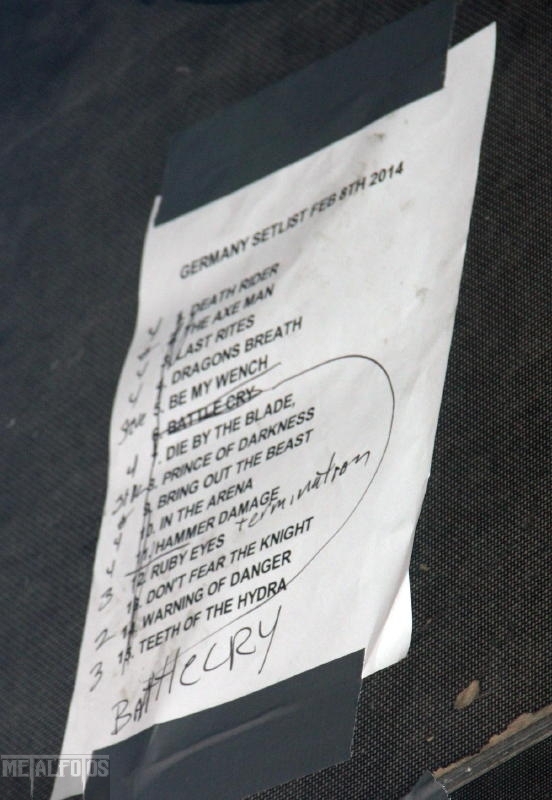 GERMANY SETLIST FEB 8TH 2014
1. DEATH RIDER
2. THE AXE MAN
3. LAST RITES
4. DRAGONS BREATH
5. BE MY WENCH
6. BATTLE CRY
7. DIE BY THE BLADE,
8. PRINCE OF DARKNESS
9. BRING OUT THE BEAST
10. IN THE ARENA
11. HAMMER DAMAGE
termination
12. RUBY EYES
13. DON'T FEAR THE KNIGHT
14. WARNING OF DANGER
15. TEETH OF THE HYDRA
BATTLECRY
4
4
4
Steve
4
4
4
3
2
3
METALFOTOS